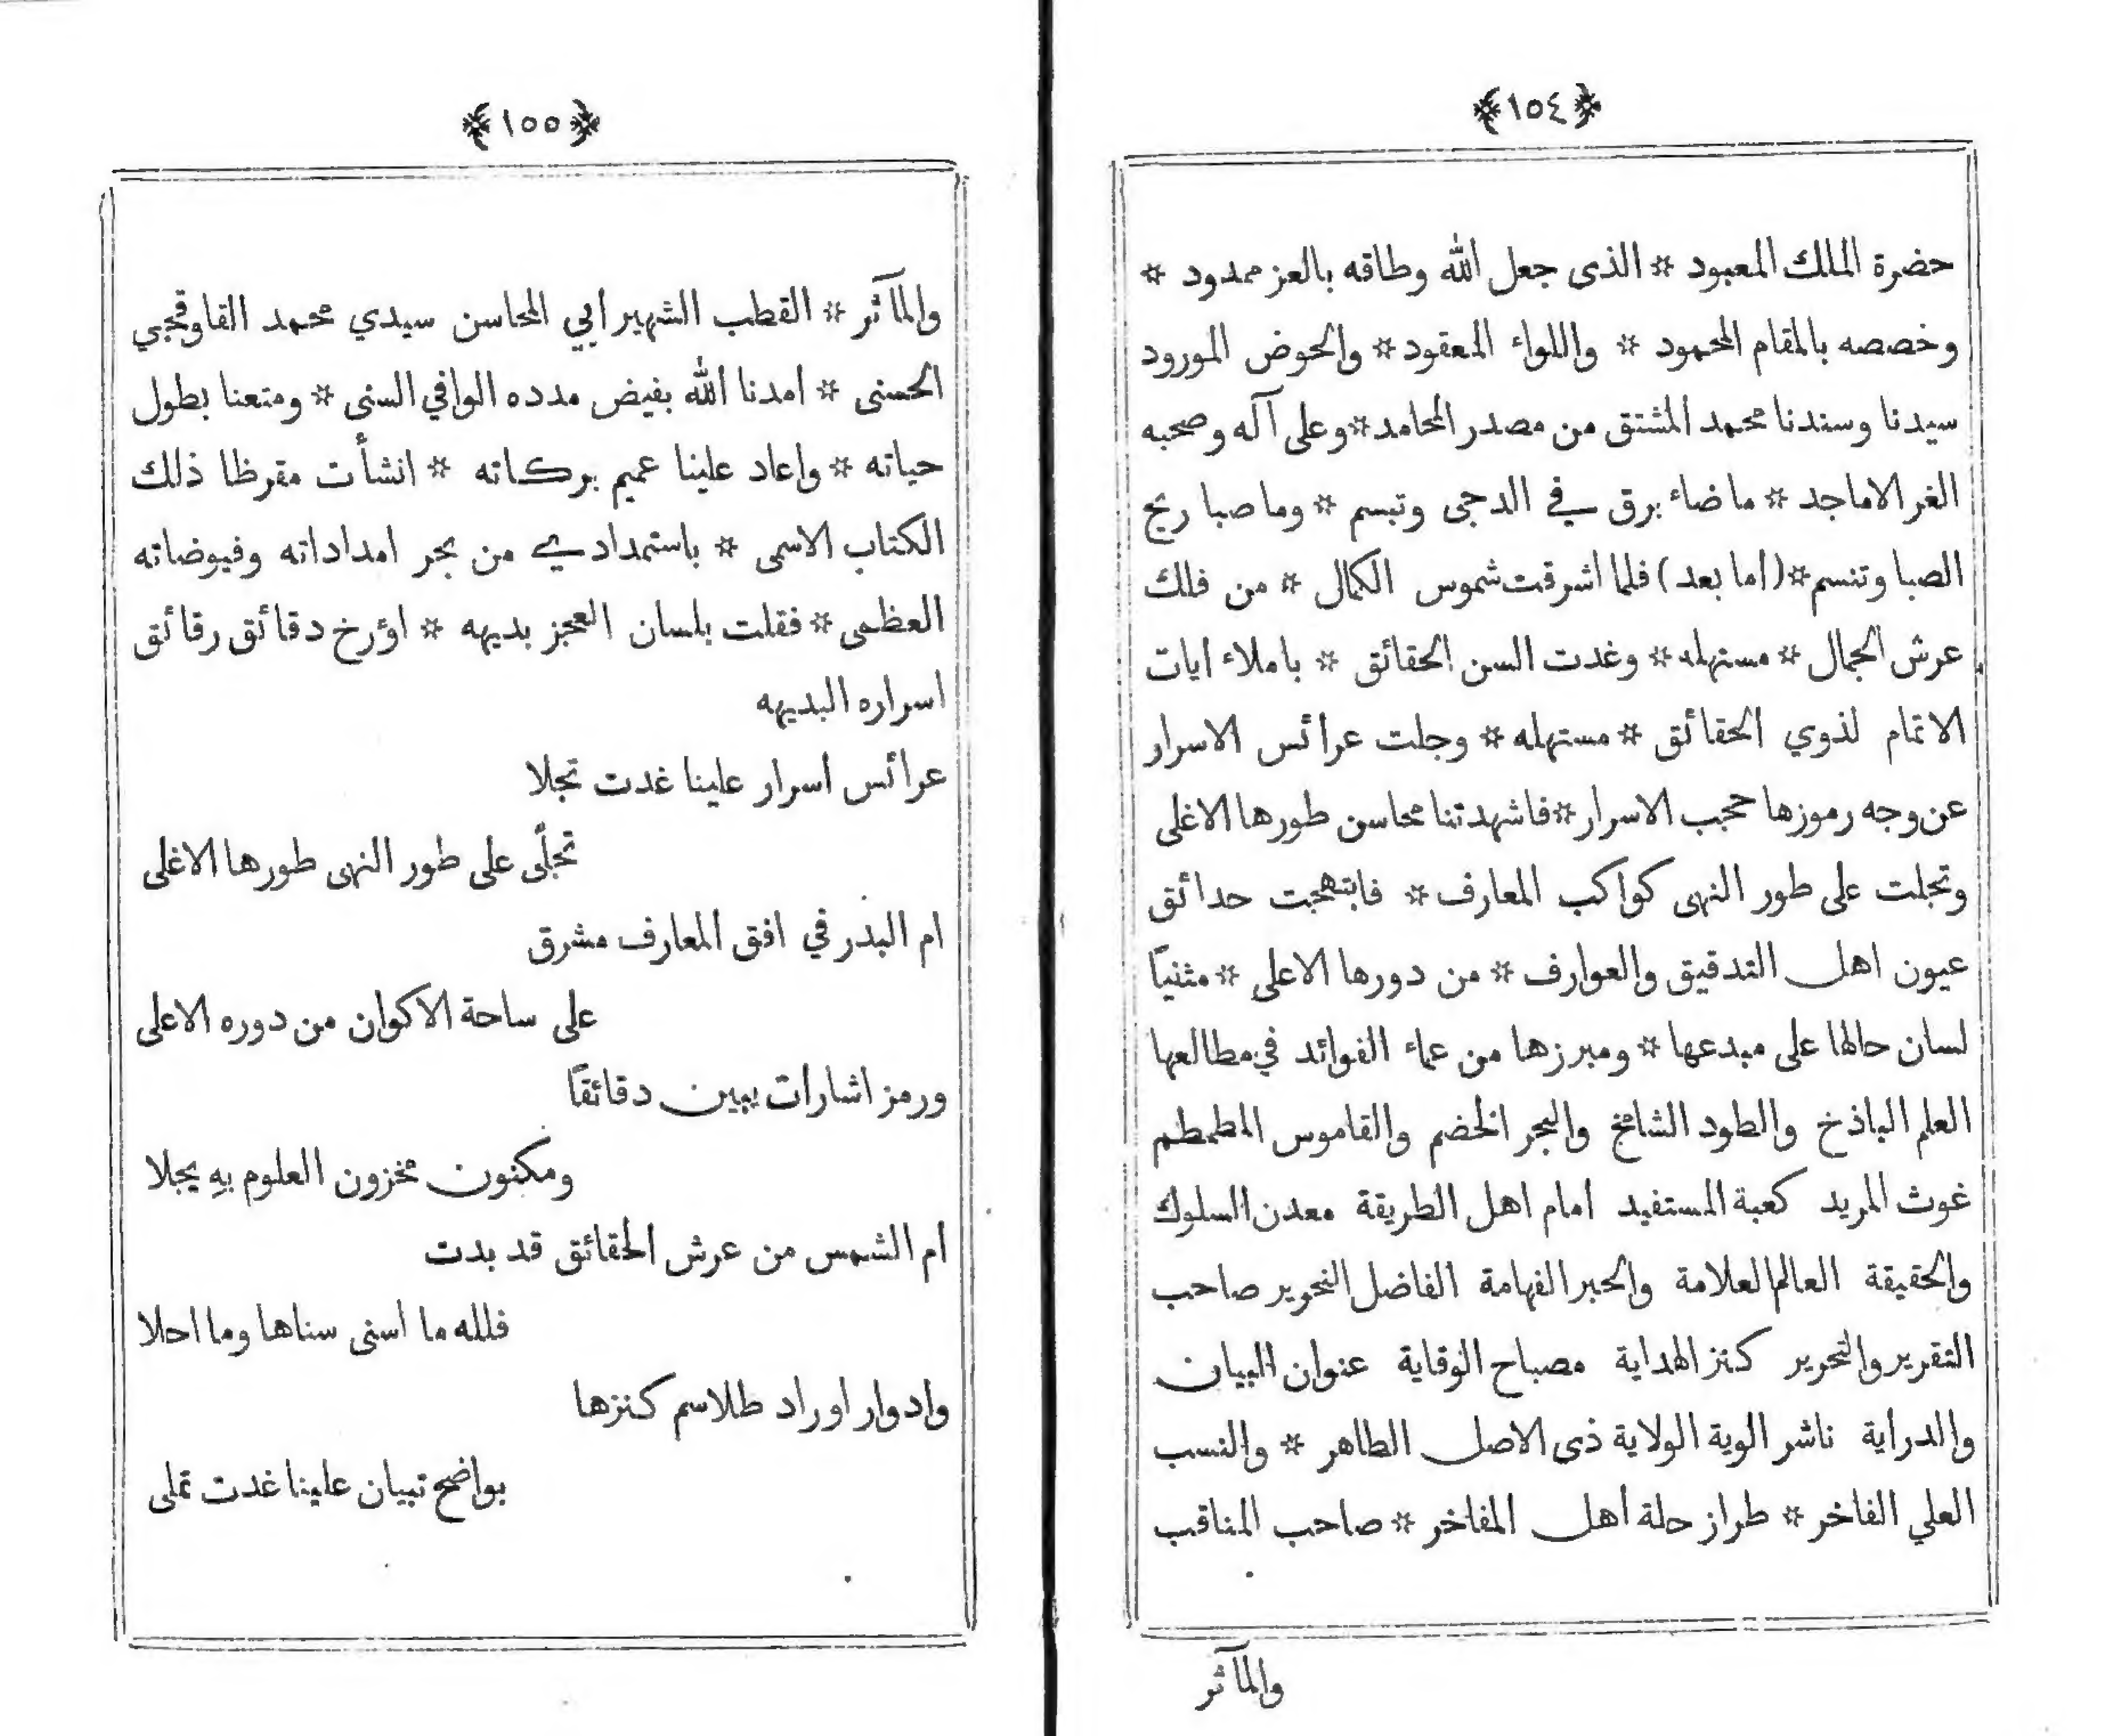 ﴿١٥٤﴾
حضرة الملك المعبود * الذى جعل الله وطاقه بالعز ممدود *
وخصصه بالمقام المحمود * واللواء المعقود * والحوض المورود
سيدنا وسندنا محمد المشتق من مصدر المحامد * وعلى آله وصحبه
الغر الاماجد * ما ضاء برق في الدجى وتبسم * وما صبا ريح
الصبا وتنسم * (اما بعد) فلما اشرقت شموس الكمال * من فلك
عرش الجمال * مستهله * وغدت السن الحقائق * باملاء ايات
الاتمام لذوي الحقائق * مستهله * وجلت عرائس الاسرار
عن وجه رموزها حجب الاسرار * فاشهدتنا محاسن طورها الاغلى
وتجلت على طور النهى كواكب المعارف * فابتهجت حدائق
عيون اهل التدقيق والعوارف * من دورها الاعلى * مثنياً
لسان حالها على مبدعها * ومبرزها من عماء الفوائد في مطالعها
العلم الباذخ والطود الشامخ والبحر الخضم والقاموس المطمطم
غوث المريد كعبة المستفيد امام اهل الطريقة معدن السلوك
والحقيقة العالم العلامة والحبر الفهامة الفاضل النحرير صاحب
التقرير والتحرير كنز الهداية مصباح الوقاية عنوان البيان
والدراية ناشر الوية الولاية ذى الاصل الطاهر * والنسب
العلي الفاخر * طراز حلة أهل المفاخر * صاحب المناقب
والمآثر
﴿١٥٥﴾
والمآثر * القطب الشهير ابي المحاسن سيدي محمد القاوقجي
الحسنى * امدنا الله بفيض مدده الوافي السنى * ومتعنا بطول
حياته * واعاد علينا عميم بركاته * انشأت مقرظا ذلك
الكتاب الاسمى * باستمدادي من بحر امداداته وفيوضاته
العظمى * فقلت بلسان العجز بديهه * اؤرخ دقائق رقائق
اسراره البديهه
عرائس اسرار علينا غدت تجلا
تجلّى على طور النهى طورها الاغلى
ام البدر في افق المعارف مشرق
على ساحة الاكوان من دوره الاعلى
ورمز اشارات يبين دقائقاً
ومكنون مخزون العلوم بهِ يجلا
ام الشمس من عرش الحقائق قد بدت
فلله ما اسنى سناها وما احلا
وادوار اوراد طلاسم كنزها
بواضح تبيان علينا غدت تملى